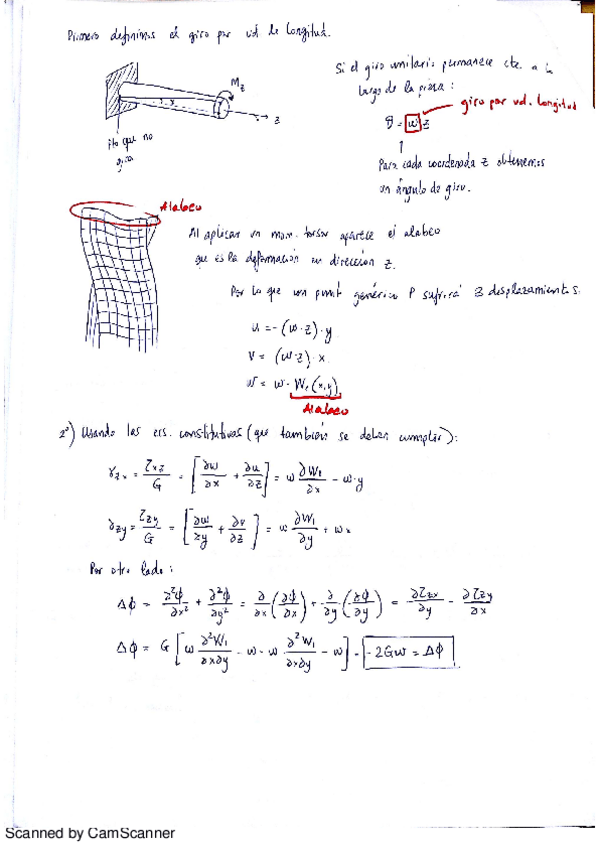 Primero definimos el giro por ud de longitud.
Si el giro unitario permanece cte. a lo
largo de la pieza:
M_z
z
θ = ω z
giro por ud. longitud
pto que no
gira
Para cada coordenada z obtenemos
un ángulo de giro.
Alabeo
Al aplicar un mom. torsor aparece el alabeo
que es la deformación en dirección z.
Por lo que un punto genérico P sufrirá 3 desplazamientos.
u = -(ω·z)·y
v = (ω·z)·x
w = ω·W₁(x,y)
Alabeo
2º) Usando las ecs. constitutivas (que también se deben cumplir):
γzx = τxz/G = [∂w/∂x + ∂u/∂z] = ω ∂W₁/∂x - ω·y
γzy = τzy/G = [∂w/∂y + ∂v/∂z] = ω ∂W₁/∂y + ωx
Por otro lado:
Δϕ = ∂²ϕ/∂x² + ∂²ϕ/∂y² = ∂/∂x(∂ϕ/∂x) + ∂/∂y(∂ϕ/∂y) = ∂τzx/∂y - ∂τzy/∂x
Δϕ = G [ω ∂²W₁/∂x∂y - ω - ω·∂²W₁/∂x∂y - ω] = -2Gω = Δϕ
Scanned by CamScanner